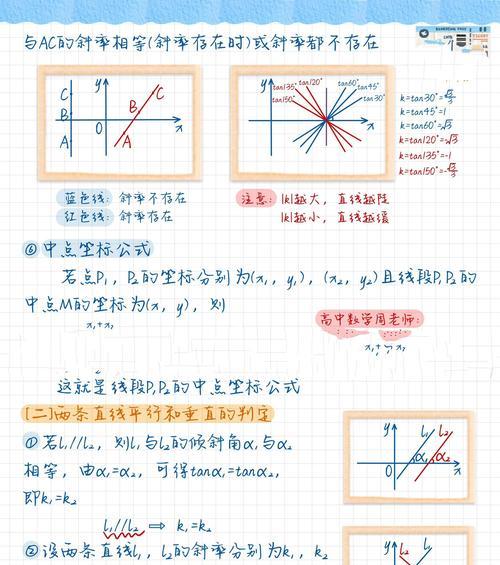 与AC的斜率相等(斜率存在时)或斜率都不存在
y
C
B
A
O
x
C
B
A
y
tan135°
tan120°
tan150°
tan60°
tan45°
tan30°
x
k=tan30°=√3/3
k=tan45°=1
k=tan60°=√3
k=tan120°=-√3
k=tan135°=-1
k=tan150°=-√3/3
蓝色线: 斜率不存在
红色线: 斜率存在
注意: |k|越大, 直线越陡
|k|越小, 直线越缓
⑥中点坐标公式
若点P₁, P₂的坐标分别为(x₁, y₁), (x₂, y₂)且线段P₁P₂的
中点M的坐标为(x, y), 则
x₁+x₂
高中数学周老师:
这就是线段P₁P₂的中点坐标公式
[二]两条直线平行和垂直的判定
①若l₁//l₂, 则l₁与l₂的倾斜角α₁与α₂
相等, 由α₁=α₂, 可得tanα₁=tanα₂,
即k₁=k₂
l₁//l₂ ⇒ k₁=k₂
y
l₁
l₂
α₁
α₂
O
x
②设两条直线l₁, l₂的斜率分别为k₁, k₂
y
l₂
l₁